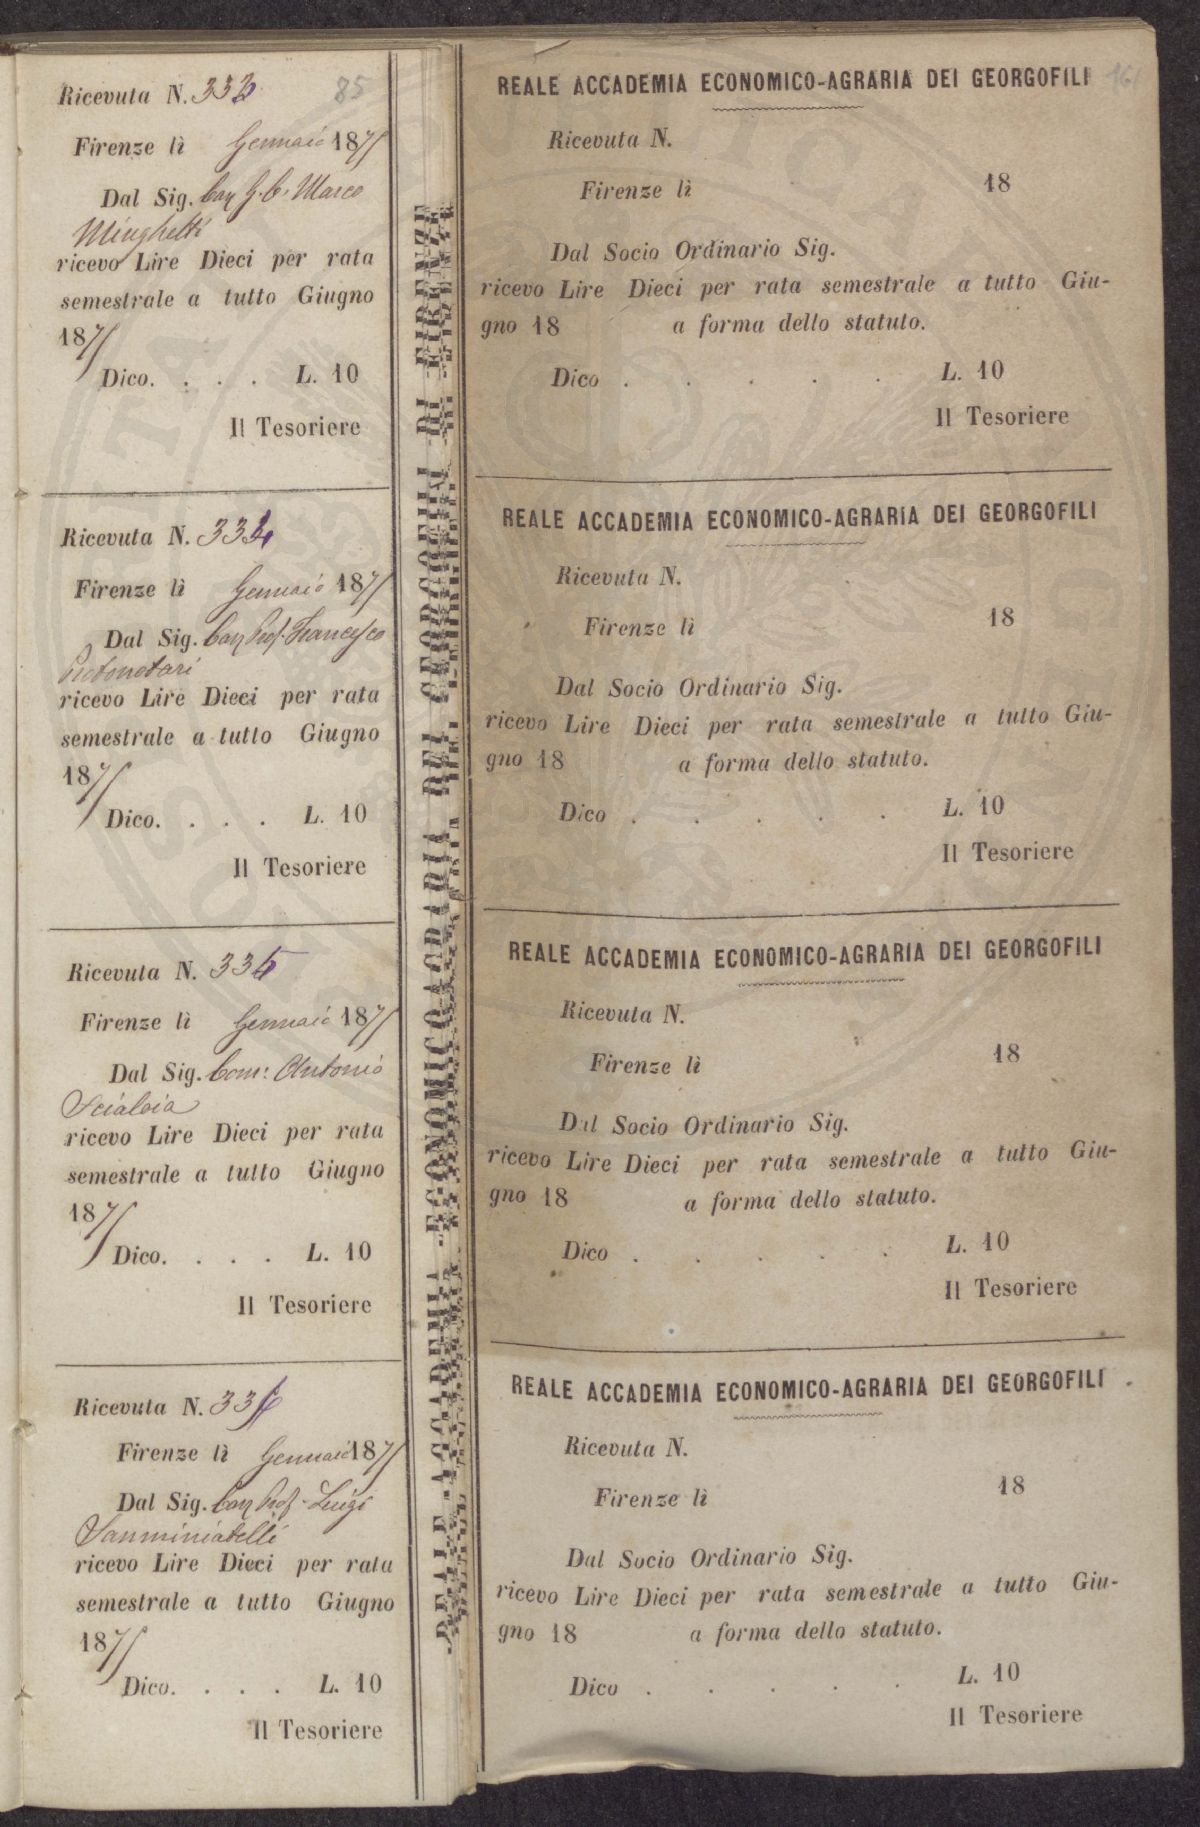 Ricevuta N. 333
85
Firenze lì Gennaio 1871
Dal Sig. Cav. G. C. Marco
Minghetti
ricevo Lire Dieci per rata
semestrale a tutto Giugno
1871
Dico. . . . L. 10
Il Tesoriere
Ricevuta N. 334
Firenze lì Gennaio 1871
Dal Sig. Cav Prof. Francesco
Protonotari
ricevo Lire Dieci per rata
semestrale a tutto Giugno
1871
Dico. . . . L. 10
Il Tesoriere
Ricevuta N. 335
Firenze lì Gennaio 1871
Dal Sig. Com: Antonio
Scialoia
ricevo Lire Dieci per rata
semestrale a tutto Giugno
1871
Dico. . . . L. 10
Il Tesoriere
Ricevuta N. 336
Firenze lì Gennaio 1871
Dal Sig. Cav Prof. Luigi
Sanminiatelli
ricevo Lire Dieci per rata
semestrale a tutto Giugno
1871
Dico. . . . L. 10
Il Tesoriere
REALE ACCADEMIA ECONOMICO-AGRARIA DEI GEORGOFILI DI FIRENZE
REALE ACCADEMIA ECONOMICO-AGRARIA DEI GEORGOFILI
161
Ricevuta N.
Firenze lì 18
Dal Socio Ordinario Sig.
ricevo Lire Dieci per rata semestrale a tutto Giu-
gno 18 a forma dello statuto.
Dico . . . . . L. 10
Il Tesoriere
REALE ACCADEMIA ECONOMICO-AGRARIA DEI GEORGOFILI
Ricevuta N.
Firenze lì 18
Dal Socio Ordinario Sig.
ricevo Lire Dieci per rata semestrale a tutto Giu-
gno 18 a forma dello statuto.
Dico . . . . . L. 10
Il Tesoriere
REALE ACCADEMIA ECONOMICO-AGRARIA DEI GEORGOFILI
Ricevuta N.
Firenze lì 18
Dal Socio Ordinario Sig.
ricevo Lire Dieci per rata semestrale a tutto Giu-
gno 18 a forma dello statuto.
Dico . . . . . L. 10
Il Tesoriere
REALE ACCADEMIA ECONOMICO-AGRARIA DEI GEORGOFILI
Ricevuta N.
Firenze lì 18
Dal Socio Ordinario Sig.
ricevo Lire Dieci per rata semestrale a tutto Giu-
gno 18 a forma dello statuto.
Dico . . . . . L. 10
Il Tesoriere